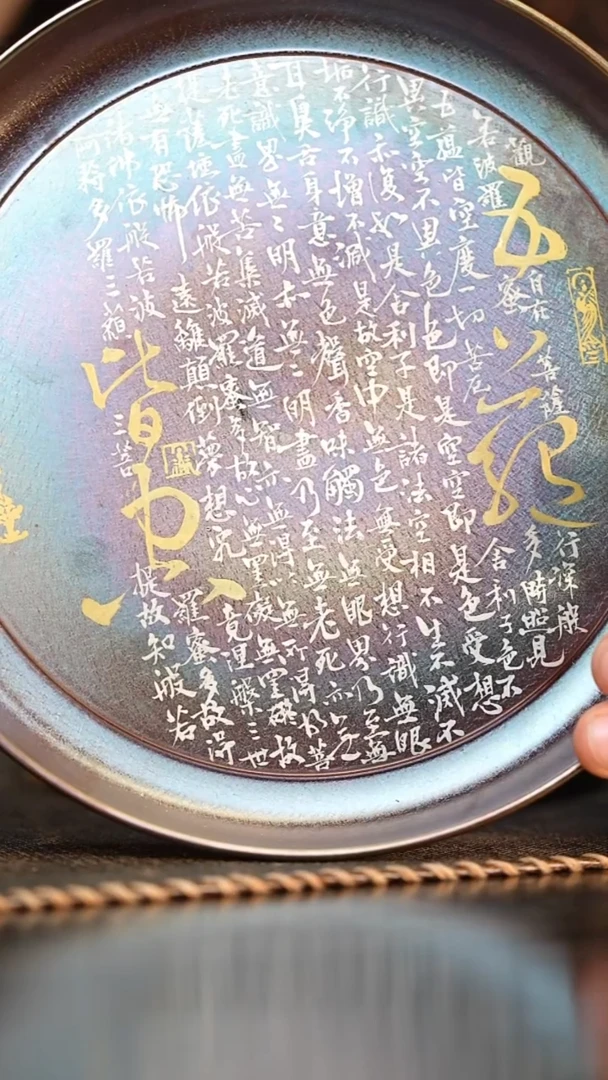 觀自在菩薩行深般
若波羅蜜多時照見
五蘊皆空度一切苦厄舍利子色不
異空空不異色色即是空空即是色受想
行識亦復如是舍利子是諸法空相不生不滅不
垢不淨不增不減是故空中無色無受想行識無眼
耳鼻舌身意無色聲香味觸法無眼界乃至無
意識界無〻明亦無〻明盡乃至無老死亦無
老死盡無苦集滅道無智亦無得以無所得故菩
提薩埵依般若波羅蜜多故心無罣礙無罣礙故
無有恐怖遠離顛倒夢想究竟涅槃三世
諸佛依般若波羅蜜多故得
阿耨多羅三藐三菩提故知般若
五蘊
皆空